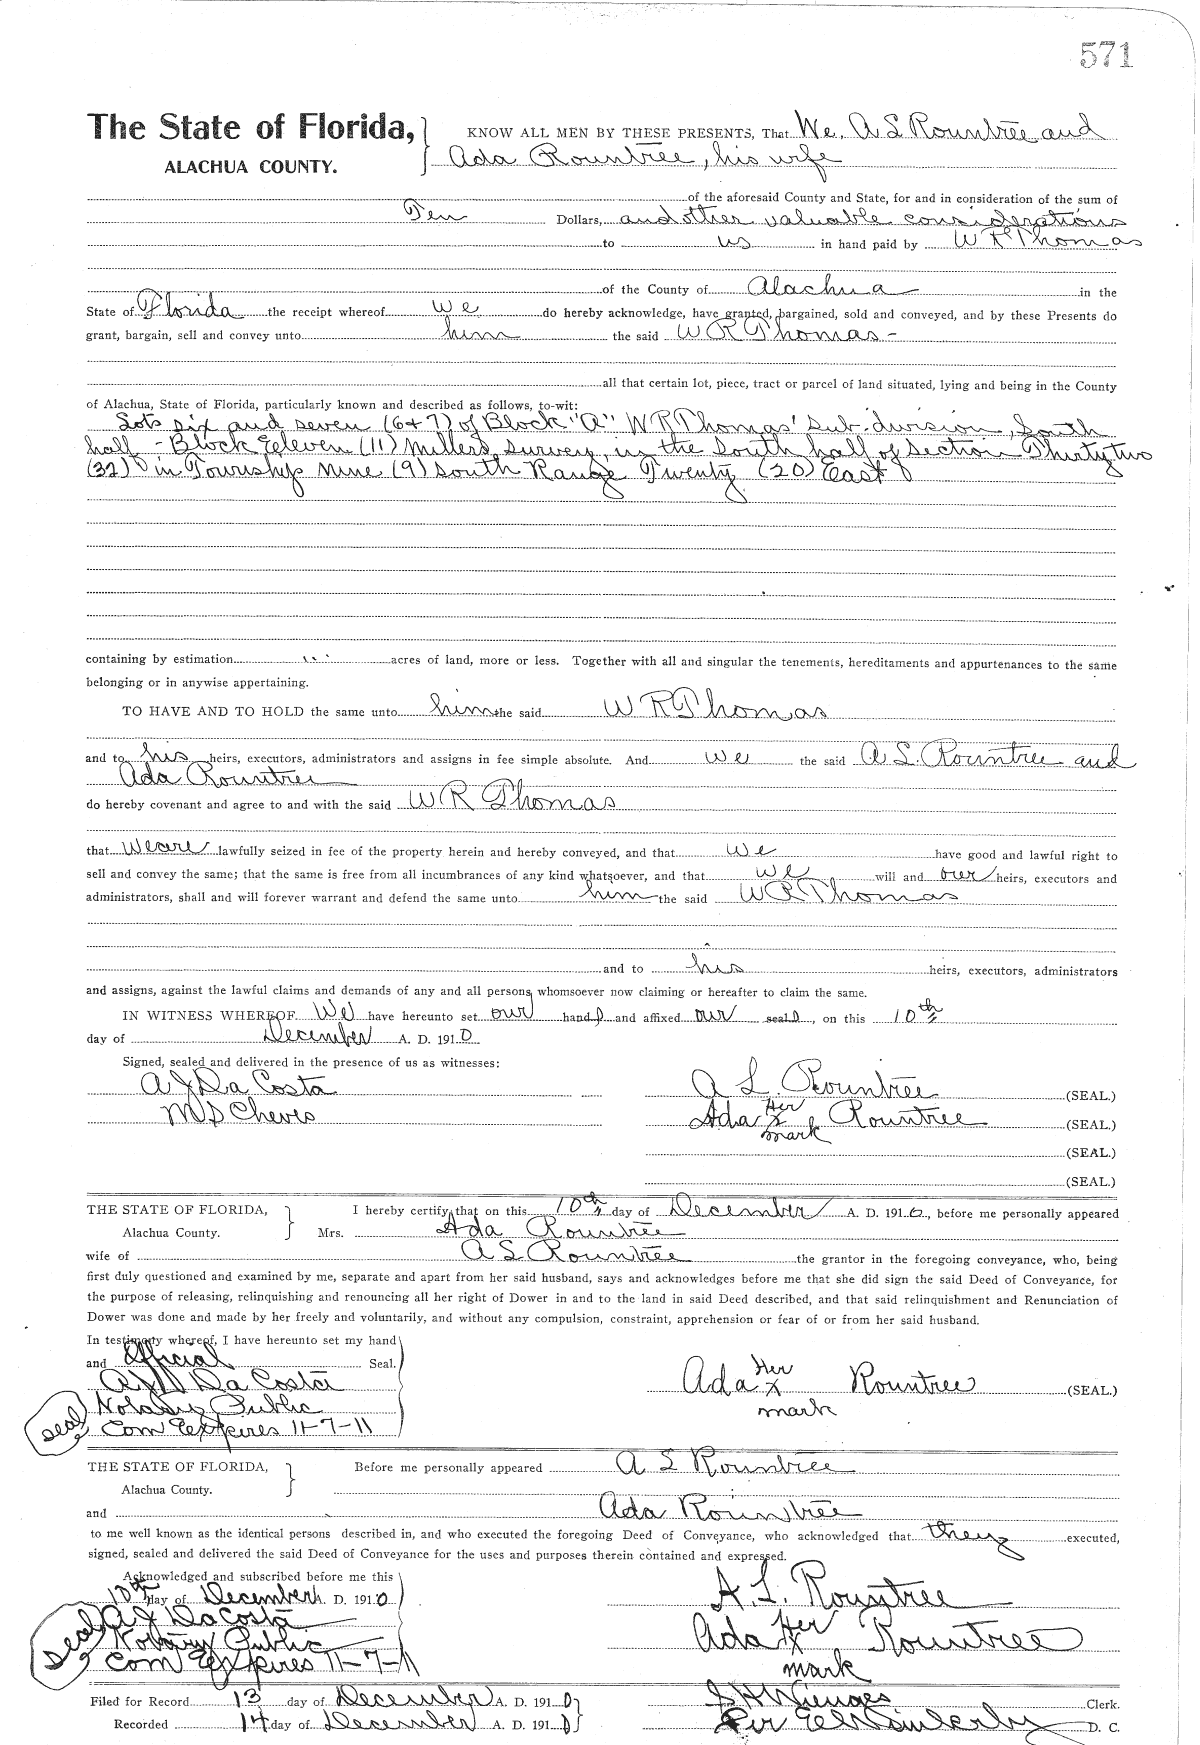 571
The State of Florida, KNOW ALL MEN BY THESE PRESENTS, That We, A S Rountree and
ALACHUA COUNTY. Ada Rountree, his wife
of the aforesaid County and State, for and in consideration of the sum of
Ten Dollars, and other valuable considerations
to us in hand paid by W R Thomas
of the County of Alachua in the
State of Florida the receipt whereof we do hereby acknowledge, have granted, bargained, sold and conveyed, and by these Presents do
grant, bargain, sell and convey unto him the said W R Thomas -
all that certain lot, piece, tract or parcel of land situated, lying and being in the County
of Alachua, State of Florida, particularly known and described as follows, to-wit:
Lots six and seven (6+7) of Block "A" W R Thomas' Sub-division, South
half - Block Eleven (11) Millers survey, in the South half of Section Thirty two
(32) in Township nine (9) South Range Twenty (20) East
containing by estimation acres of land, more or less. Together with all and singular the tenements, hereditaments and appurtenances to the same
belonging or in anywise appertaining.
TO HAVE AND TO HOLD the same unto him the said W R Thomas
and to his heirs, executors, administrators and assigns in fee simple absolute. And we the said A S. Rountree and
Ada Rountree
do hereby covenant and agree to and with the said W R Thomas
that we are lawfully seized in fee of the property herein and hereby conveyed, and that we have good and lawful right to
sell and convey the same; that the same is free from all incumbrances of any kind whatsoever, and that we will and our heirs, executors and
administrators, shall and will forever warrant and defend the same unto him the said W R Thomas
and to his heirs, executors, administrators
and assigns, against the lawful claims and demands of any and all persons whomsoever now claiming or hereafter to claim the same.
IN WITNESS WHEREOF We have hereunto set our hands and affixed our seals, on this 10th
day of December A. D. 1910
Signed, sealed and delivered in the presence of us as witnesses:
A J Da Costa A S Rountree (SEAL.)
M S Cheves Ada Her X mark Rountree (SEAL.)
(SEAL.)
(SEAL.)
THE STATE OF FLORIDA, I hereby certify that on this 10th day of December A. D. 1910, before me personally appeared
Alachua County. Mrs. Ada Rountree
wife of A S Rountree the grantor in the foregoing conveyance, who, being
first duly questioned and examined by me, separate and apart from her said husband, says and acknowledges before me that she did sign the said Deed of Conveyance, for
the purpose of releasing, relinquishing and renouncing all her right of Dower in and to the land in said Deed described, and that said relinquishment and Renunciation of
Dower was done and made by her freely and voluntarily, and without any compulsion, constraint, apprehension or fear of or from her said husband.
In testimony whereof, I have hereunto set my hand
and Official Seal.
A J Da Costa Ada Her X mark Rountree (SEAL.)
Notary Public
seal Com Expires 11-7-11
THE STATE OF FLORIDA, Before me personally appeared A S Rountree
Alachua County.
and Ada Rountree
to me well known as the identical persons described in, and who executed the foregoing Deed of Conveyance, who acknowledged that they executed,
signed, sealed and delivered the said Deed of Conveyance for the uses and purposes therein contained and expressed.
Acknowledged and subscribed before me this
10th day of December A. D. 1910 A. S. Rountree
A J Da Costa Ada Her X mark Rountree
seal Notary Public
Com Expires 11-7-11
Filed for Record 13 day of December A. D. 1910 Clerk.
Recorded 14 day of December A. D. 1910 Per D. C.